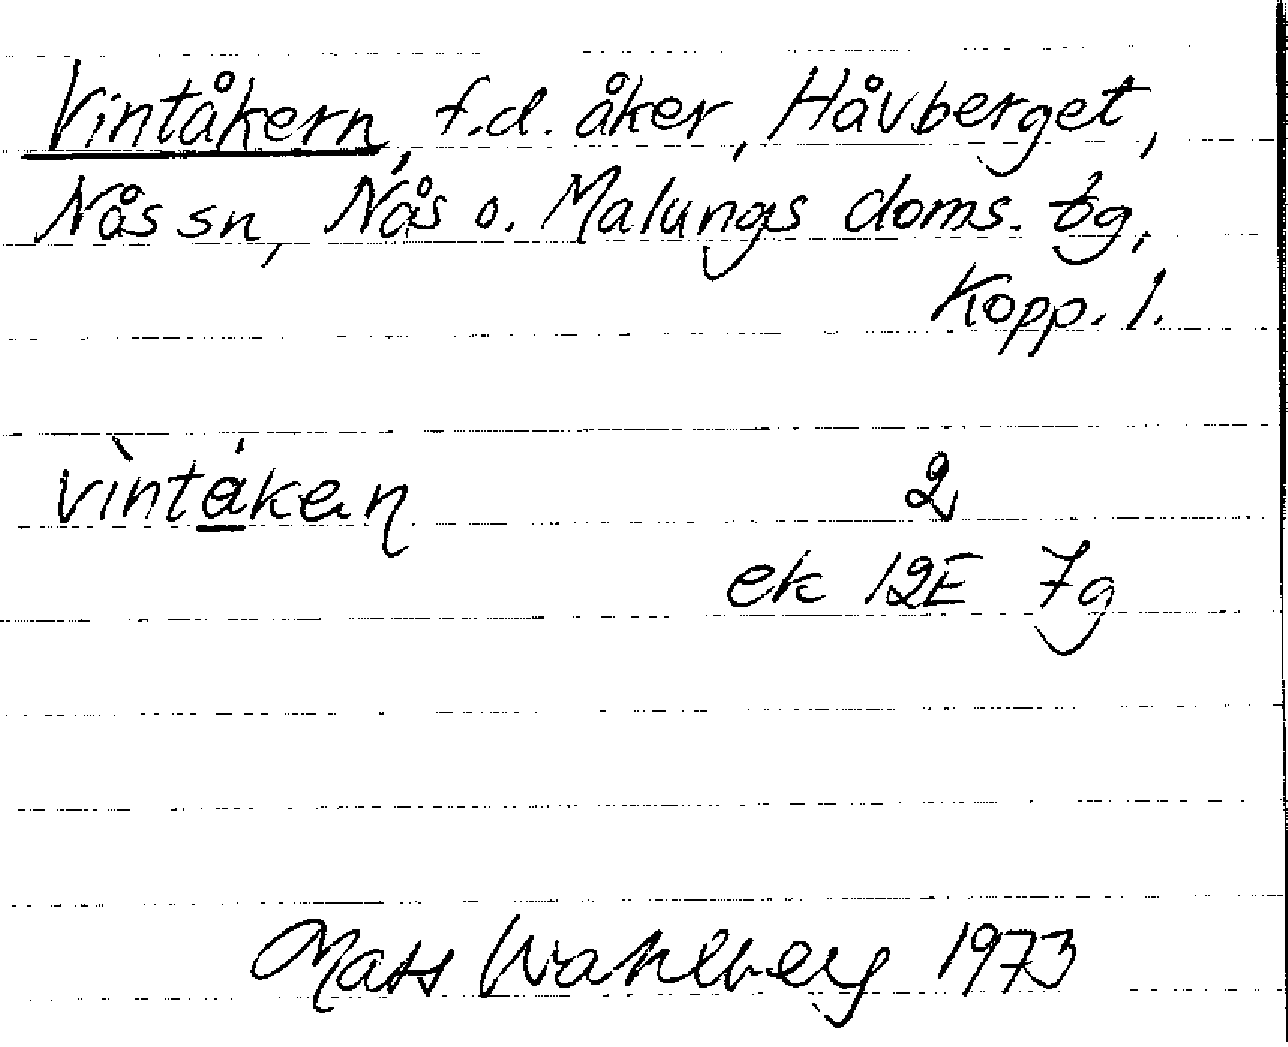 Vintåkern, f.d. åker, Håvberget,
Nås sn, Nås o. Malungs doms. tg,
Kopp. l.
vìntákaɳ 2
ek 12E 7g
Mats Wahlberg 1973